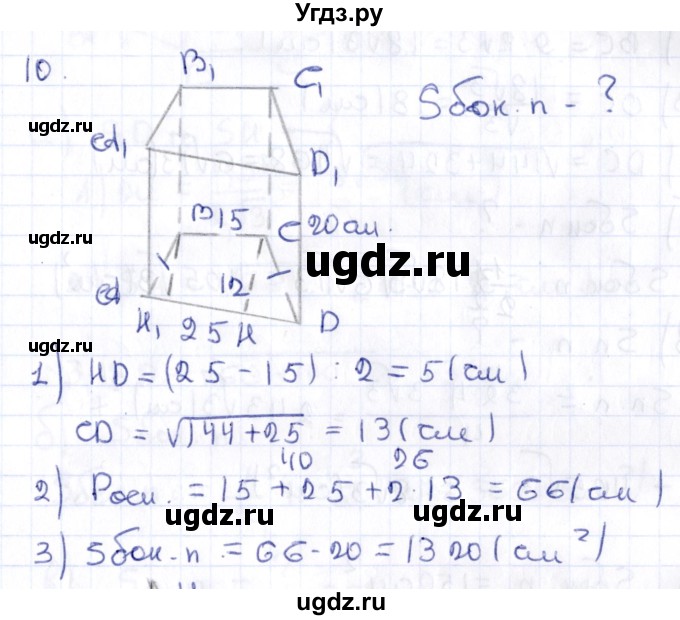 Угдз.ру
10.
B₁ C₁
S бок. п - ?
ugdz.ru
A₁ D₁
B 15 C 20 см.
ugdz.ru ugdz.ru
A 12
H₁ 25 H D
ugdz.ru
1) HD = (25 - 15) : 2 = 5 (см)
CD = √144+25 = 13 (см)
40 26
2) Pосн. = 15 + 25 + 2·13 = 66 (см)
ugdz.ru ugdz.ru
3) S бок. п. = 66·20 = 1320 (см²)
ugdz.ru ugdz.ru